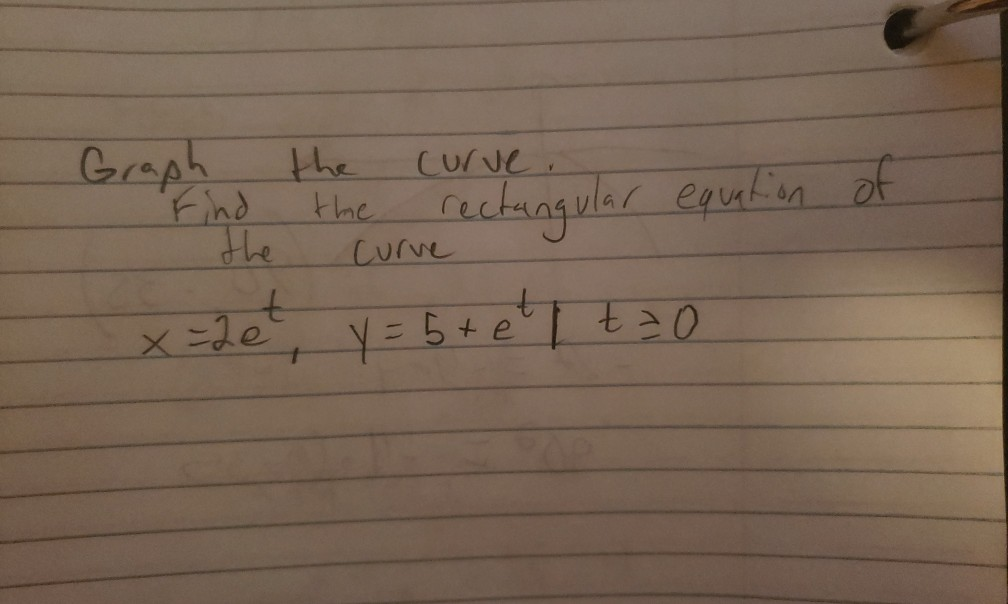 Graph the curve.
Find the rectangular equation of
the curve
x = 2e^t, y = 5 + e^t | t ≥ 0